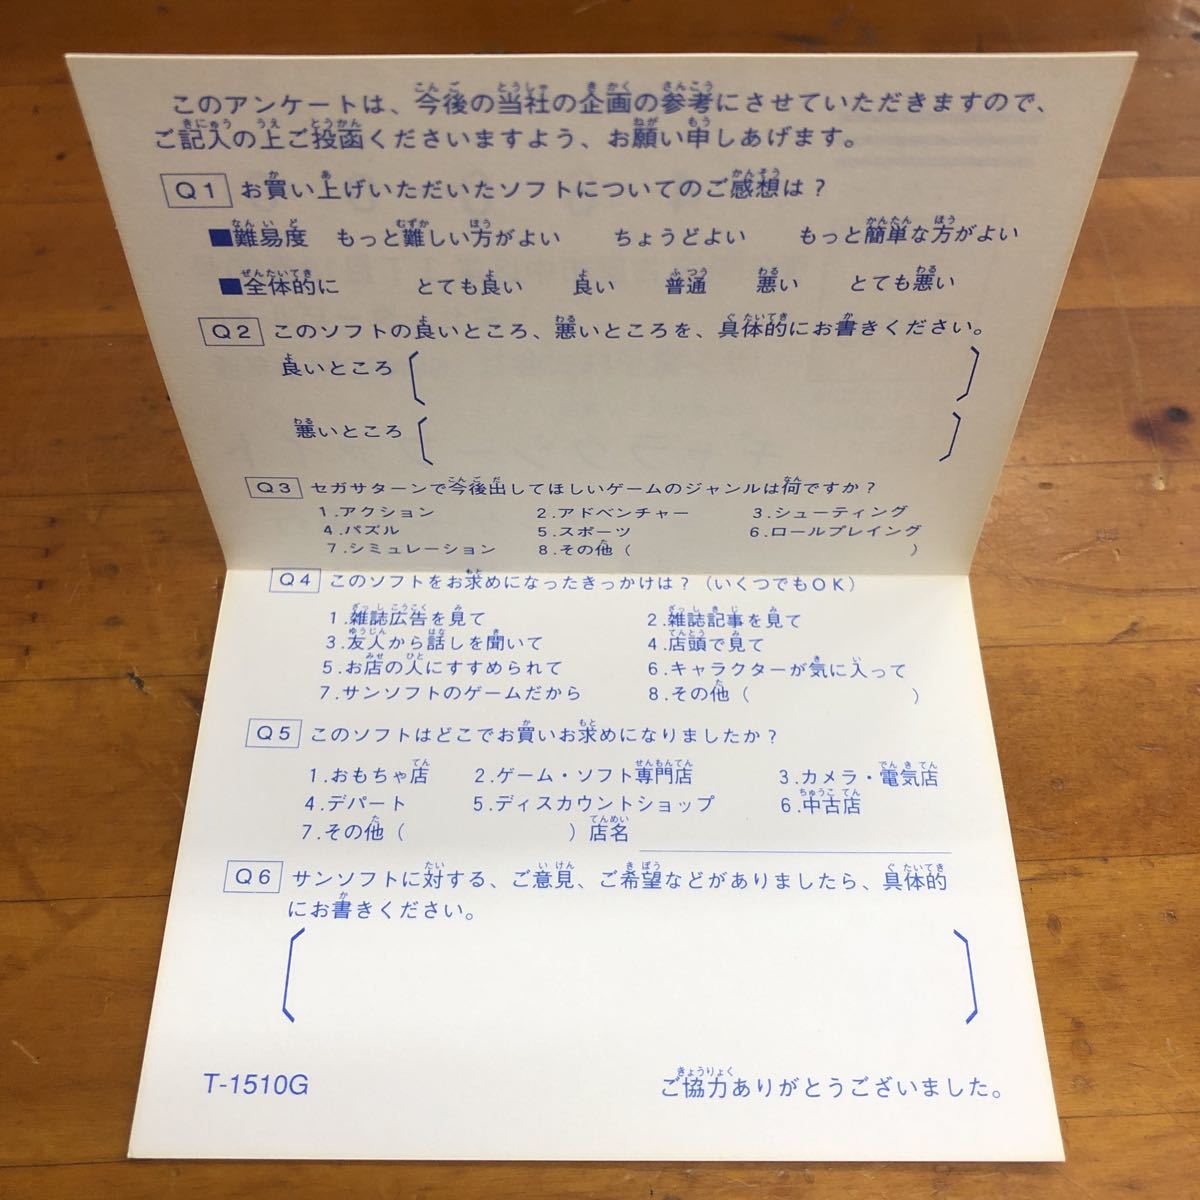 このアンケートは、今後の当社の企画の参考にさせていただきますので、
ご記入の上ご投函くださいますよう、お願い申しあげます。
Q1 お買い上げいただいたソフトについてのご感想は?
■難易度 もっと難しい方がよい ちょうどよい もっと簡単な方がよい
■全体的に とても良い 良い 普通 悪い とても悪い
Q2 このソフトの良いところ、悪いところを、具体的にお書きください。
良いところ
悪いところ
Q3 セガサターンで今後出してほしいゲームのジャンルは何ですか?
1.アクション 2.アドベンチャー 3.シューティング
4.パズル 5.スポーツ 6.ロールプレイング
7.シミュレーション 8.その他( )
Q4 このソフトをお求めになったきっかけは?(いくつでもOK)
1.雑誌広告を見て 2.雑誌記事を見て
3.友人から話しを聞いて 4.店頭で見て
5.お店の人にすすめられて 6.キャラクターが気に入って
7.サンソフトのゲームだから 8.その他( )
Q5 このソフトはどこでお買いお求めになりましたか?
1.おもちゃ店 2.ゲーム・ソフト専門店 3.カメラ・電気店
4.デパート 5.ディスカウントショップ 6.中古店
7.その他( )店名
Q6 サンソフトに対する、ご意見、ご希望などがありましたら、具体的
にお書きください。
T-1510G ご協力ありがとうございました。